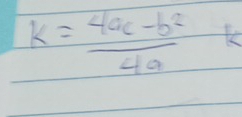 K = \frac{4ac - b²}{4a} k